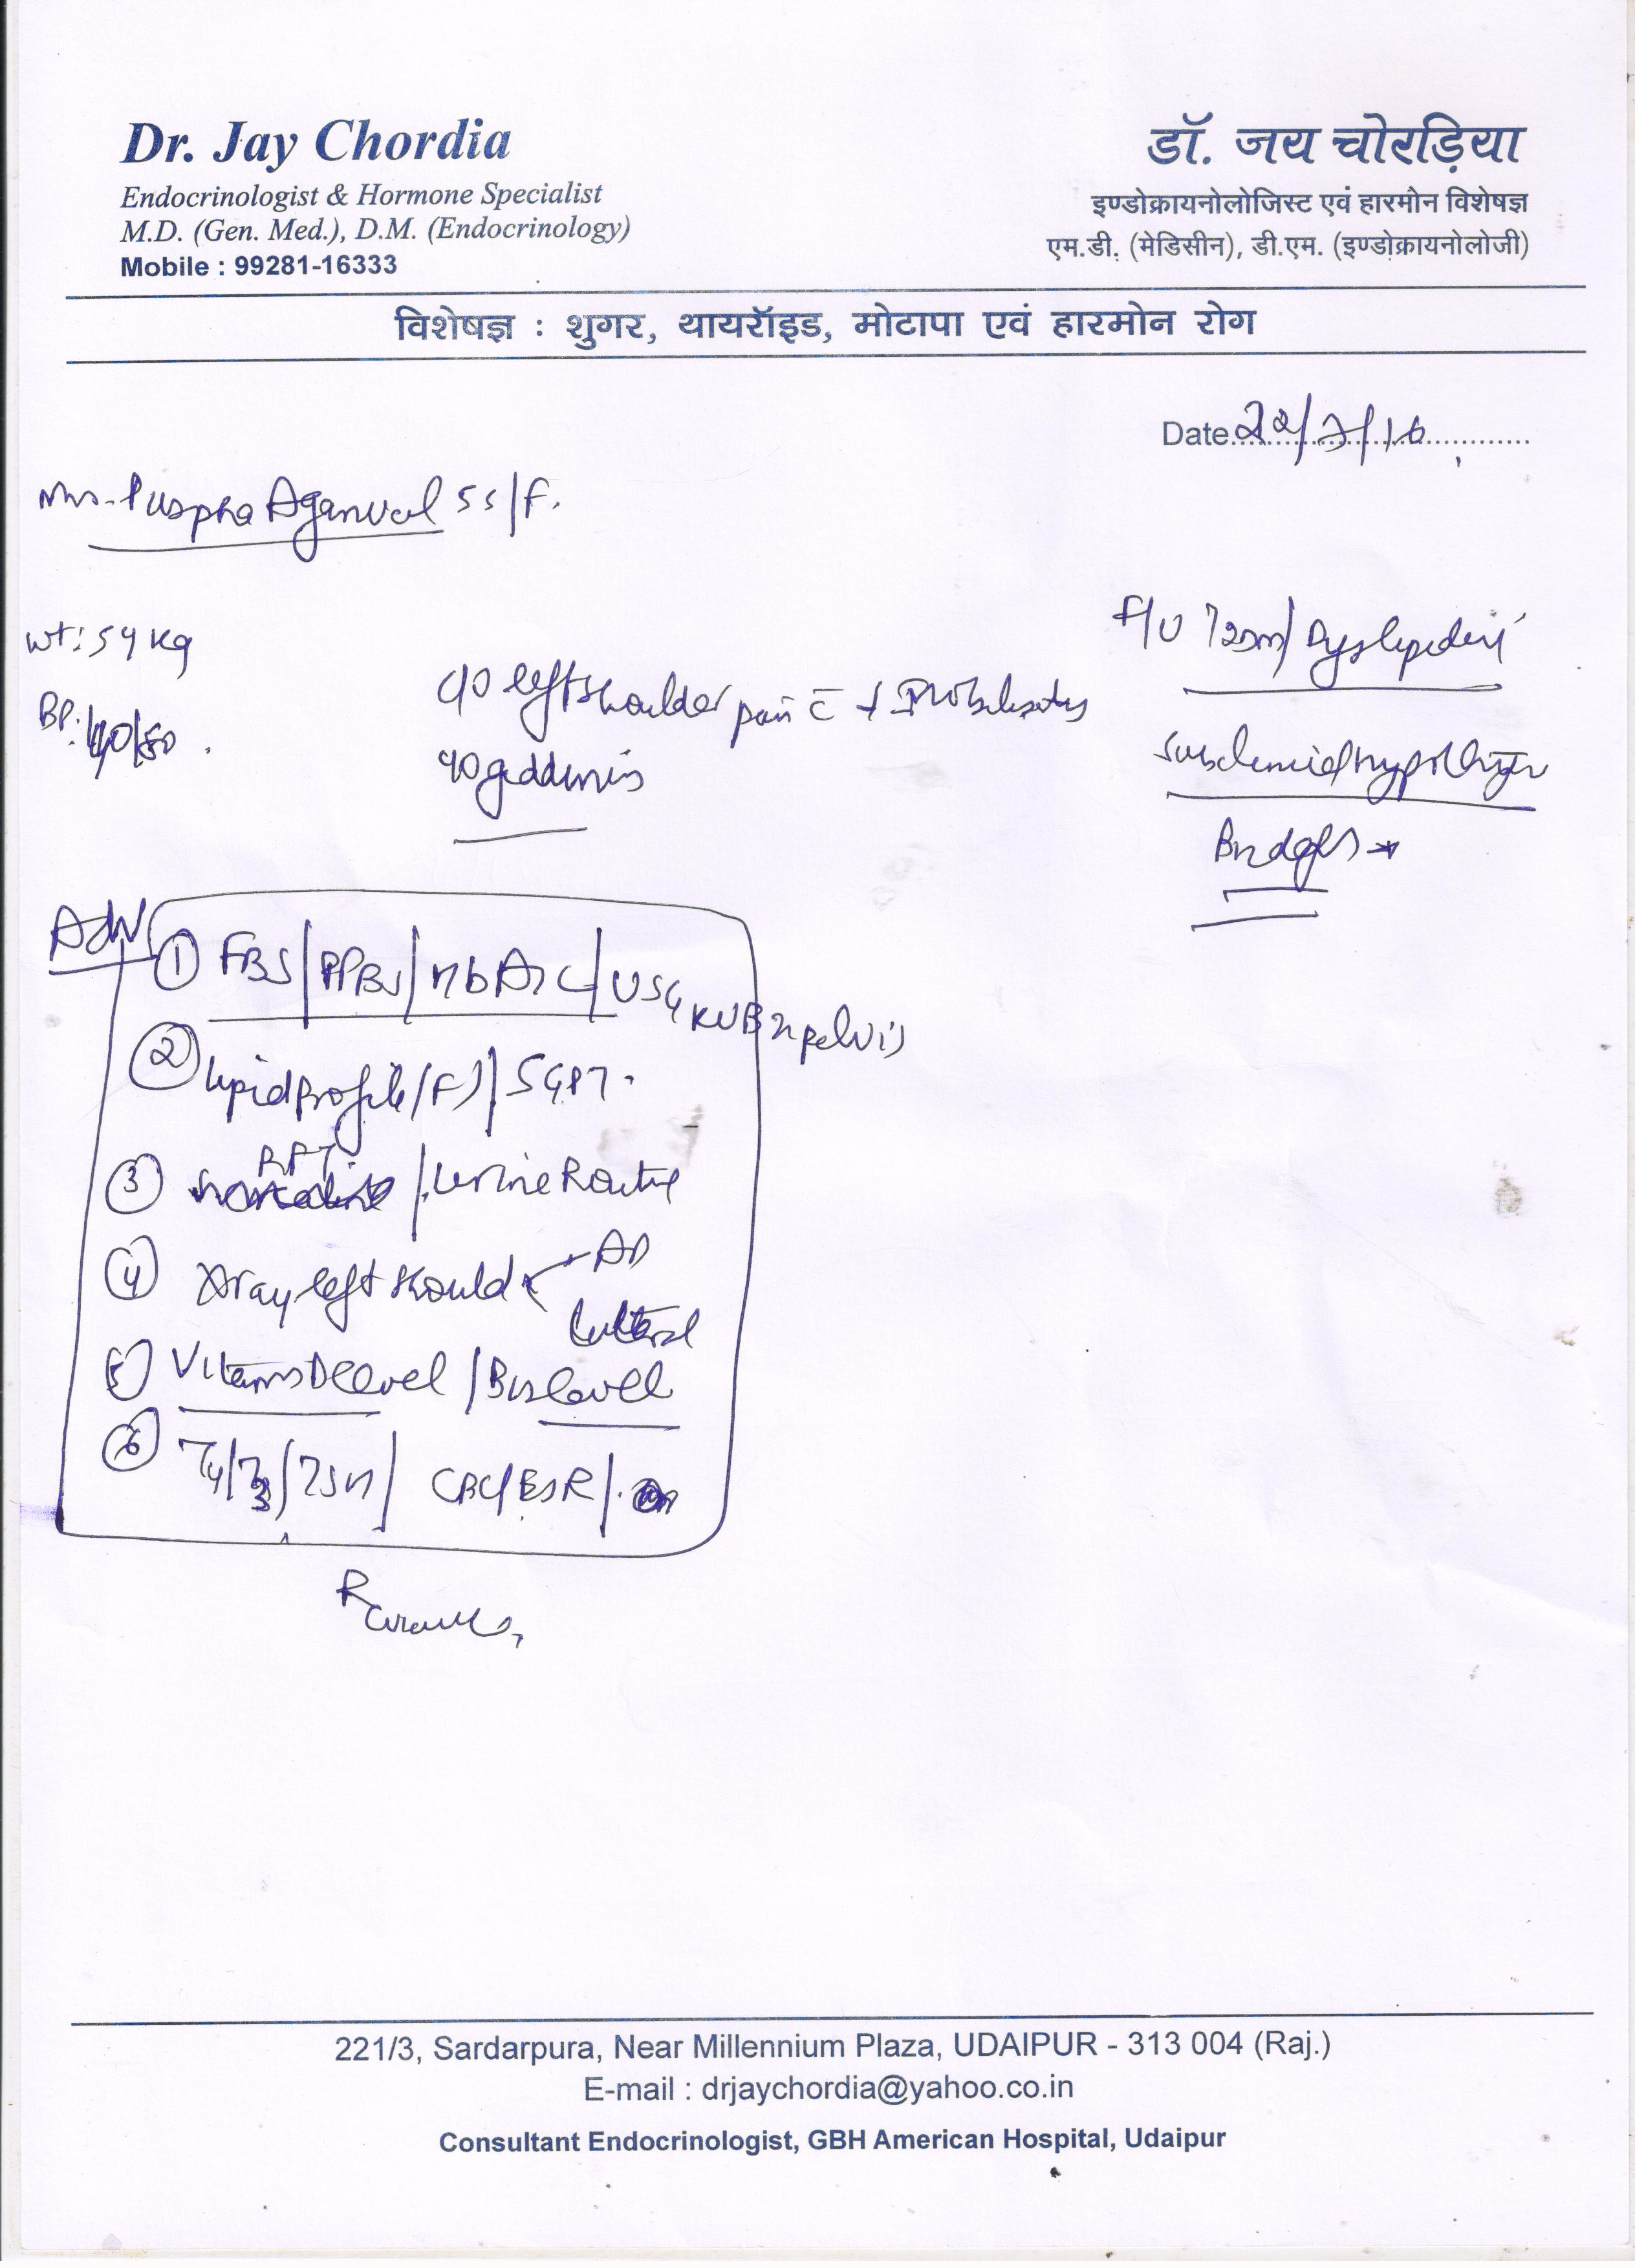 Dr. Jay Chordia
Endocrinologist & Hormone Specialist
M.D. (Gen. Med.), D.M. (Endocrinology)
Mobile : 99281-16333
डॉ. जय चोरड़िया
इण्डोक्रायनोलोजिस्ट एवं हारमोन विशेषज्ञ
एम.डी. (मेडिसीन), डी.एम. (इण्डोक्रायनोलोजी)
विशेषज्ञ : शुगर, थायरॉइड, मोटापा एवं हारमोन रोग
Date 22/7/16
Mrs. Puspha Agarwal 55/F.
Wt: 54 kg
BP: 140/80.
F/U T2DM/
c/o left shoulder pain c̄
c/o giddiness
Adv
① FBS/PPBS/HbA1C/USG KUB n pelvis
② Lipid Profile (F)/SGPT.
③ RFT/Urine Routine
④ Xray left should
AP
Lateral
⑤ Vitamin D level/B12 level
⑥ T4/T3/TSH/ CBC/ESR/.
221/3, Sardarpura, Near Millennium Plaza, UDAIPUR - 313 004 (Raj.)
E-mail : drjaychordia@yahoo.co.in
Consultant Endocrinologist, GBH American Hospital, Udaipur